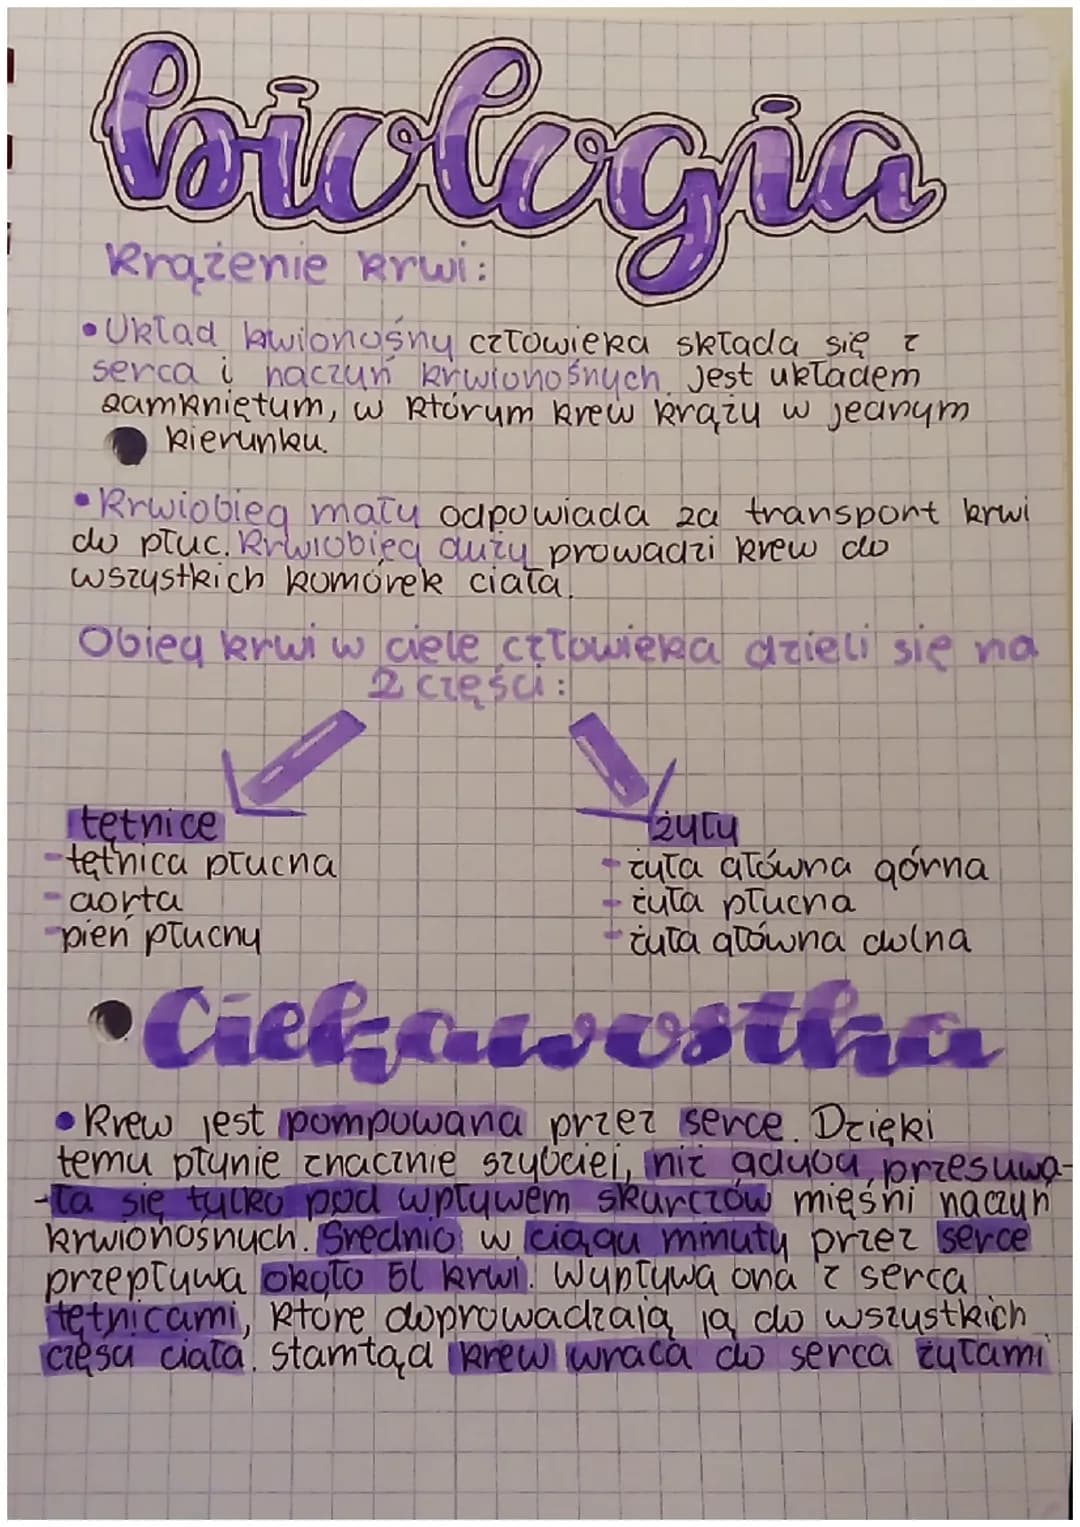 biologia
Krążenie krwi:
•Układ kwionośny człowieka składa się z
serca i naczyń krwionośnych jest układem
zamkniętym, w którym krew krąży w jednym
kierunku.
•Krwiobieg mały odpowiada za transport krwi
do płuc. Krwiobieg duży prowadzi krew do
wszystkich komórek ciała.
Obieg krwi w ciele człowieka dzieli się na
2 części:
tętnice
-tętnica płucna
-aorta
-pień płucny
żyły
-żyła główna górna
-żyła płucna
-żyła główna dolna
Ciekawostka
•Krew jest pompowana przez serce. Dzięki
temu płynie znacznie szybciej, niż gdyby przesuwa-
-ła się tylko pod wpływem skurczów mięśni naczyń
krwionośnych. Średnio w ciągu minuty przez serce
przepływa około 5l krwi. Wypływa ona z serca
tętnicami, które doprowadzają ją do wszystkich
części ciała. Stamtąd krew wraca do serca żyłami